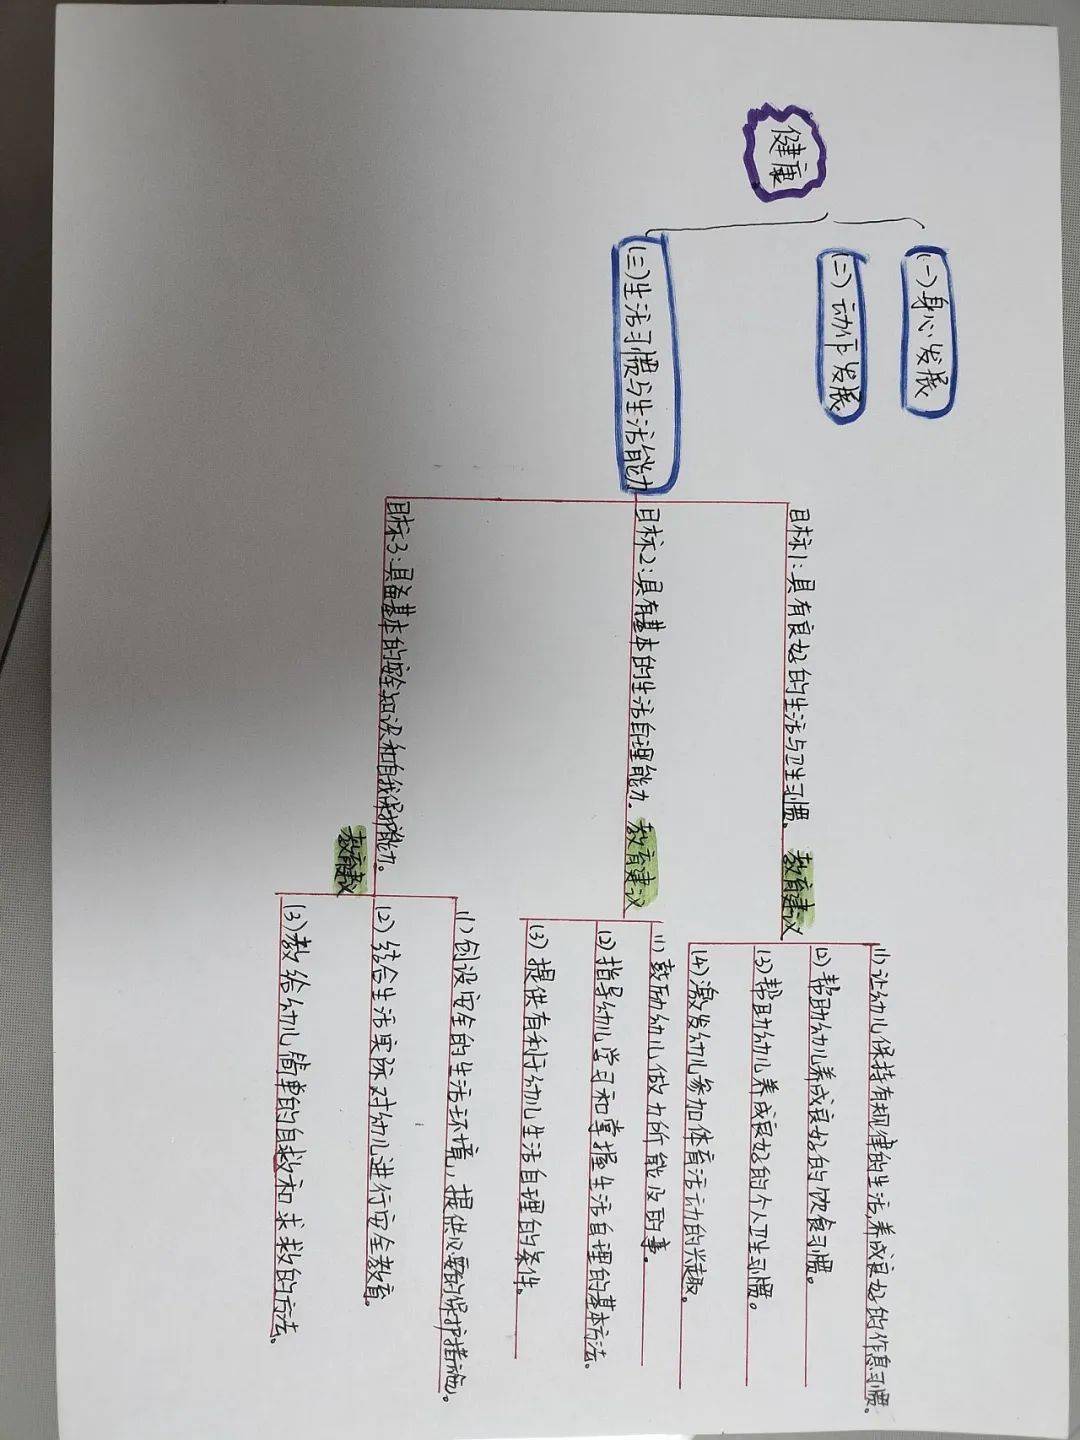 健康
(一)身心发展
(二)动作发展
(三)生活习惯与生活能力
目标1:具有良好的生活与卫生习惯。
教育建议
(1)让幼儿保持有规律的生活,养成良好的作息习惯。
(2)帮助幼儿养成良好的饮食习惯。
(3)帮助幼儿养成良好的个人卫生习惯。
(4)激发幼儿参加体育活动的兴趣。
目标2:具有基本的生活自理能力。
教育建议
(1)鼓励幼儿做力所能及的事。
(2)指导幼儿学习和掌握生活自理的基本方法。
(3)提供有利于幼儿生活自理的条件。
目标3:具备基本的安全知识和自我保护能力。
教育建议
(1)创设安全的生活环境,提供必要的保护措施。
(2)结合生活实际对幼儿进行安全教育。
(3)教给幼儿简单的自救和求救的方法。